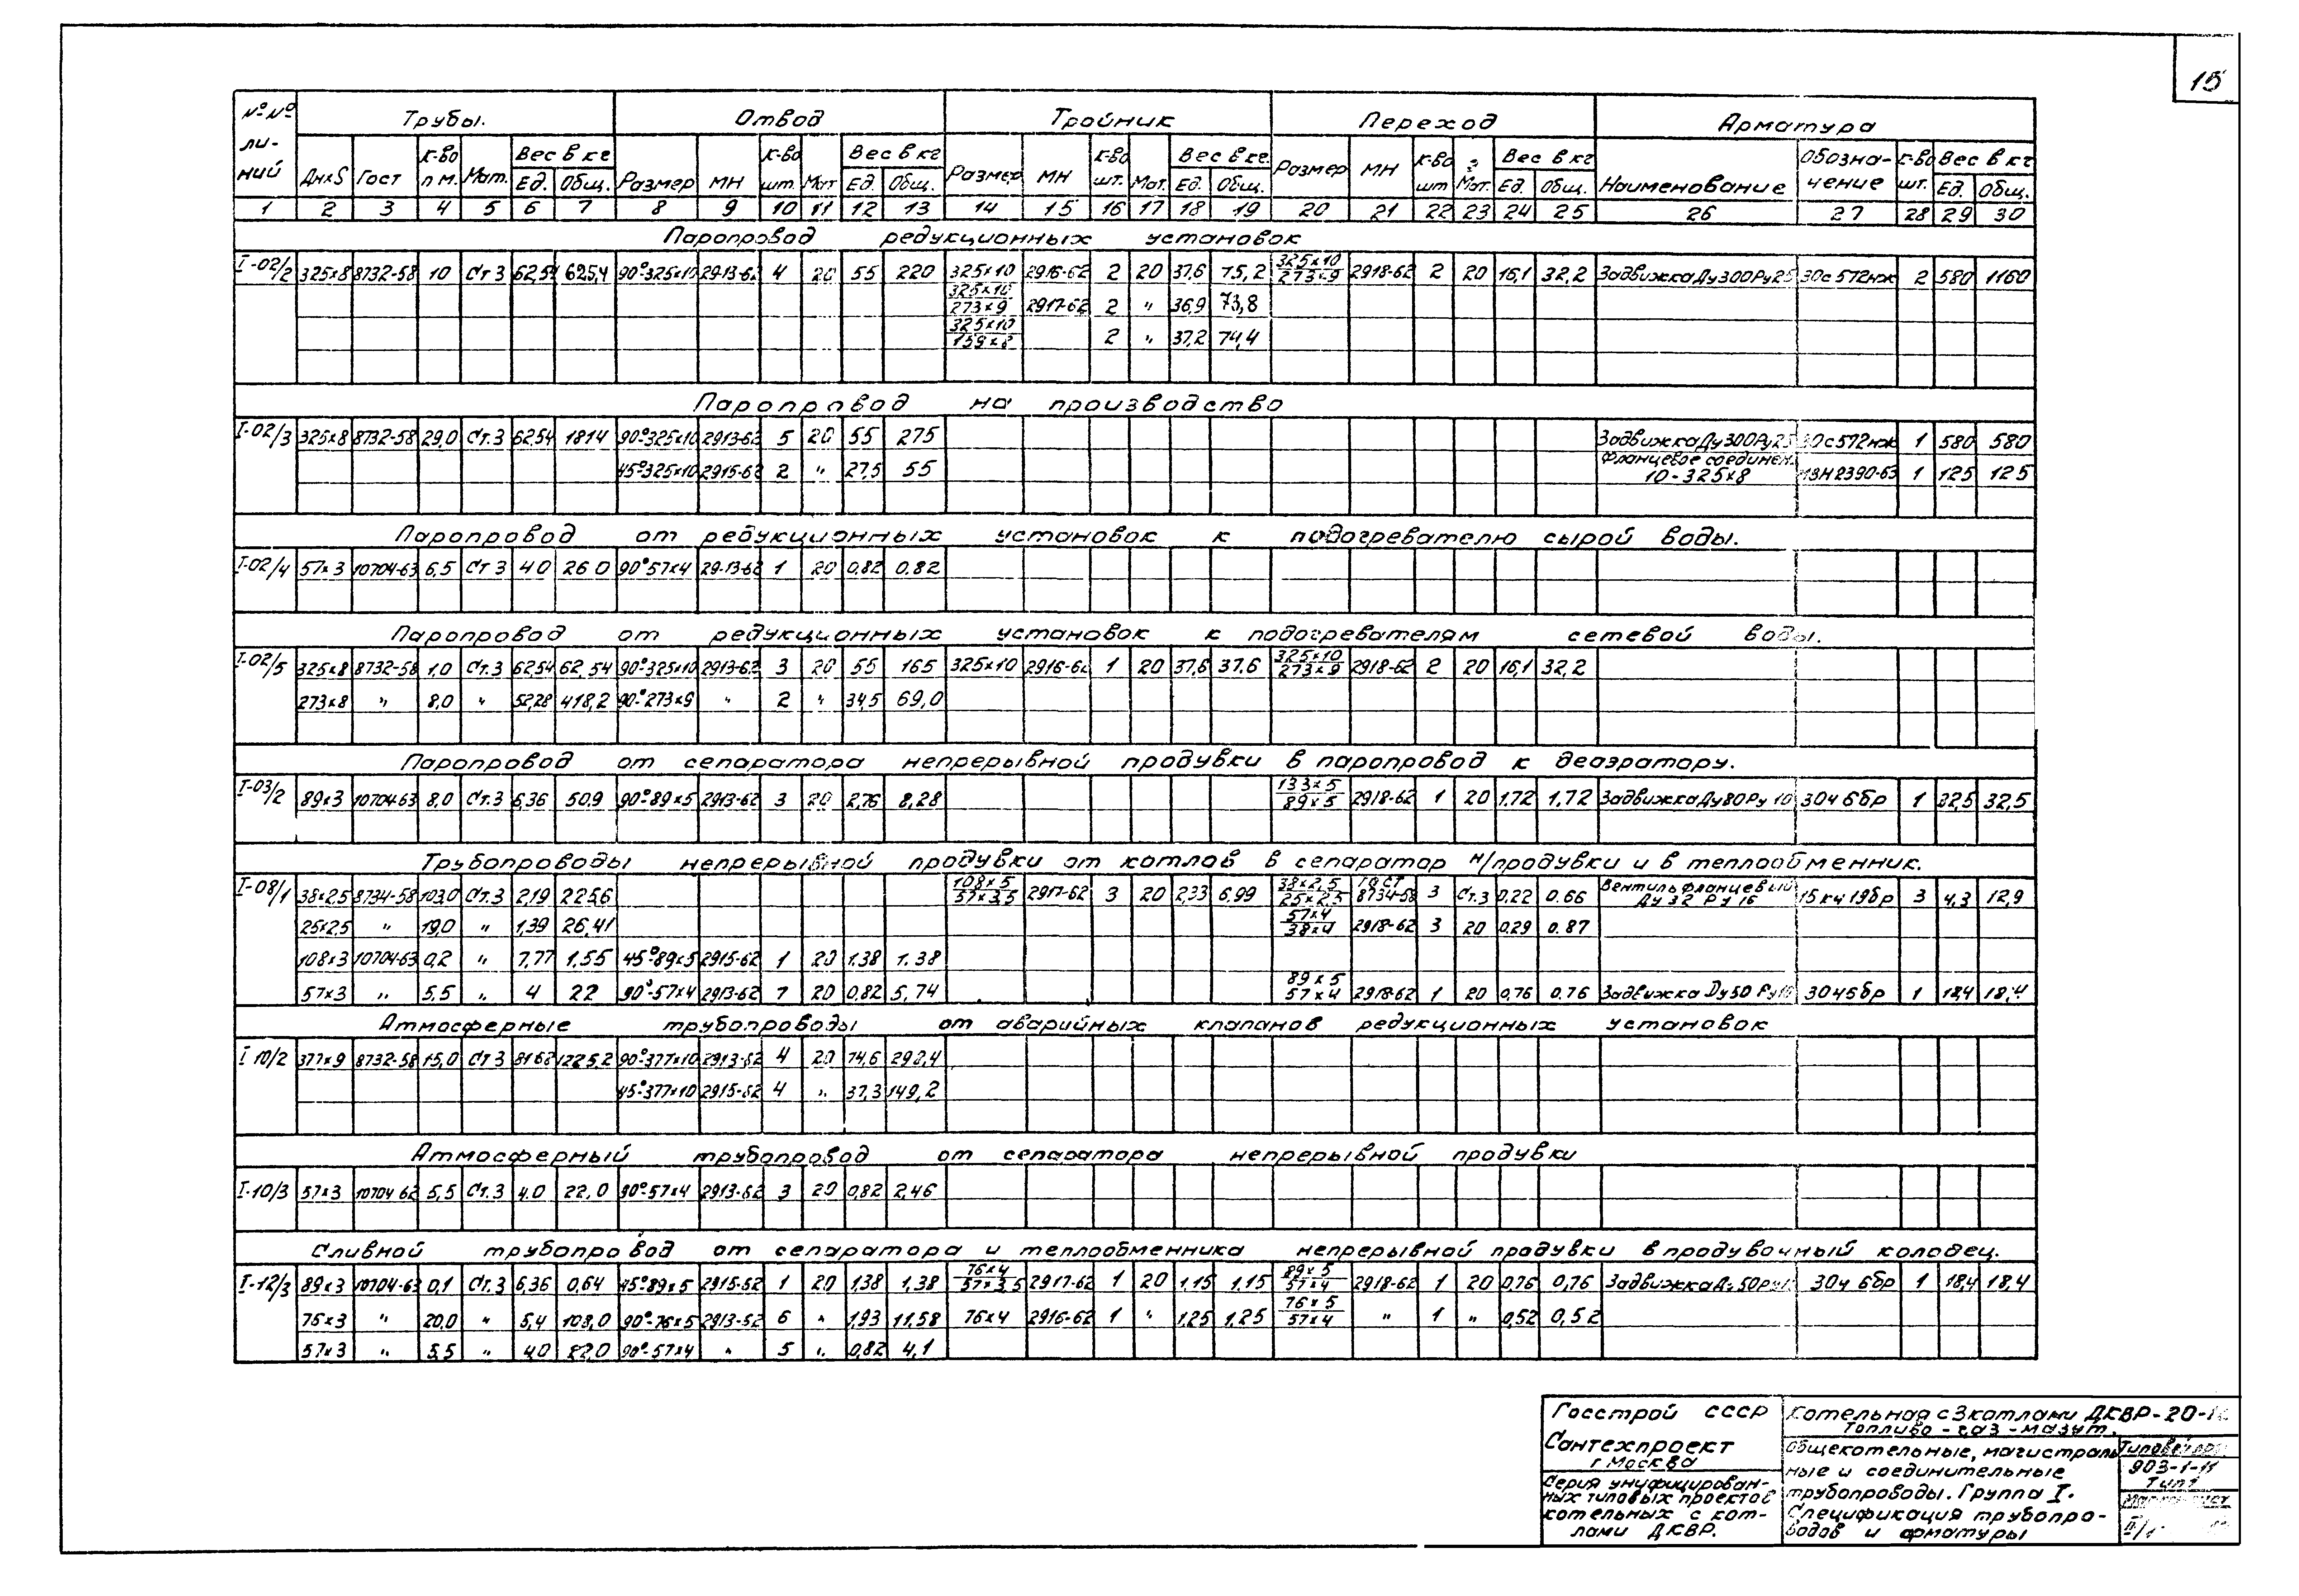 15
№№ линий | Трубы. | Отвод | Тройник | Переход | Арматура
Дн×S | Гост | к-во п м. | Мат. | Вес в кг Ед. | Общ. | Размер | МН | к-во шт. | Мат | Вес в кг Ед. | Общ. | Размер | МН | к-во шт. | Мат. | Вес в кг. Ед. | Общ. | Размер | МН | к-во шт | Мат. | Вес в кг Ед. | Общ. | Наименование | Обозна-чение | к-во шт. | Вес в кг Ед. | Общ.
1 | 2 | 3 | 4 | 5 | 6 | 7 | 8 | 9 | 10 | 11 | 12 | 13 | 14 | 15 | 16 | 17 | 18 | 19 | 20 | 21 | 22 | 23 | 24 | 25 | 26 | 27 | 28 | 29 | 30
Паропровод редукционных установок
I-02/2 | 325×8 | 8732-58 | 10 | Ст 3 | 62,54 | 625,4 | 90°325×10 | 2913-62 | 4 | 20 | 55 | 220 | 325×10 | 2916-62 | 2 | 20 | 37,6 | 75,2 | 325×10/273×9 | 2918-62 | 2 | 20 | 16,1 | 32,2 | Задвижка Ду300Ру25 | 30с572нж | 2 | 580 | 1160
325×10/273×9 | 2917-62 | 2 | " | 36,9 | 73,8
325×10/159×8 | 2 | " | 37,2 | 74,4
Паропровод на производство
I-02/3 | 325×8 | 8732-58 | 29,0 | Ст.3 | 62,54 | 1814 | 90°325×10 | 2913-62 | 5 | 20 | 55 | 275 | Задвижка Ду300Ру25 | 30с572нж | 1 | 580 | 580
45°325×10 | 2915-62 | 2 | " | 27,5 | 55 | Фланцевое соединен. 10-325×8 | МЗН2390-63 | 1 | 125 | 125
Паропровод от редукционных установок к подогревателю сырой воды.
I-02/4 | 57×3 | 10704-63 | 6,5 | Ст 3 | 4.0 | 26 0 | 90°57×4 | 2913-62 | 1 | 20 | 0,82 | 0.82
Паропровод от редукционных установок к подогревателям сетевой воды.
I-02/5 | 325×8 | 8732-58 | 1,0 | Ст.3 | 62,54 | 62,54 | 90°325×10 | 2913-62 | 3 | 20 | 55 | 165 | 325×10 | 2916-62 | 1 | 20 | 37,6 | 37.6 | 325×10/273×9 | 2918-62 | 2 | 20 | 16,1 | 32,2
273×8 | " | 8,0 | " | 52,28 | 418,2 | 90°273×9 | " | 2 | " | 34,5 | 69,0
Паропровод от сепаратора непрерывной продувки в паропровод к деаэратору.
I-03/2 | 89×3 | 10704-63 | 8,0 | Ст.3 | 6,36 | 50,9 | 90°89×5 | 2913-62 | 3 | 20 | 2,76 | 8,28 | 133×5/89×5 | 2918-62 | 1 | 20 | 1,72 | 1,72 | Задвижка Ду80Ру 10 | 30ч 6бр | 1 | 32,5 | 32,5
Трубопроводы непрерывной продувки от котлов в сепаратор н/продувки и в теплообменник.
I-08/1 | 38×2,5 | 8734-58 | 103,0 | Ст.3 | 2,19 | 225,6 | 108×5/57×3,5 | 2917-62 | 3 | 20 | 2,33 | 6,99 | 38×2,5/25×2,5 | ГОСТ 8734-58 | 3 | Ст.3 | 0,22 | 0.66 | Вентиль фланцевый Ду 32 Ру 16 | 15кч 19бр | 3 | 4,3 | 12,9
25×2,5 | " | 19,0 | " | 1,39 | 26,41 | 57×4/38×4 | 2918-62 | 3 | 20 | 0.29 | 0.87
108×3 | 10704-63 | 0,2 | " | 7,77 | 1,55 | 45°89×5 | 2915-62 | 1 | 20 | 1.38 | 1.38
57×3 | " | 5,5 | " | 4 | 22 | 90°-57×4 | 2913-62 | 7 | 20 | 0,82 | 5,74 | 89×5/57×4 | 2918-62 | 1 | 20 | 0,76 | 0.76 | Задвижка Ду50 Ру10 | 30ч6бр | 1 | 18,4 | 18,4
Атмосферные трубопроводы от аварийных клапанов редукционных установок
I 10/2 | 377×9 | 8732-58 | 15,0 | Ст 3 | 81 68 | 1225,2 | 90°377×10 | 2913-62 | 4 | 20 | 74,6 | 298,4
45°377×10 | 2915-62 | 4 | " | 37,3 | 149,2
Атмосферный трубопровод от сепаратора непрерывной продувки
I-10/3 | 57×3 | 10704 62 | 5,5 | Ст.3 | 4.0 | 22,0 | 90°57×4 | 2913-62 | 3 | 20 | 0,82 | 2,46
Сливной трубопровод от сепаратора и теплообменника непрерывной продувки в продувочный колодец.
I-12/3 | 89×3 | 10704-63 | 0,1 | Ст.3 | 6,36 | 0,64 | 45°89×5 | 2915-62 | 1 | 20 | 1,38 | 1,38 | 76×4/57×3,5 | 2917-62 | 1 | 20 | 1,15 | 1.15 | 89×5/57×4 | 2918-62 | 1 | 20 | 0,76 | 0,76 | Задвижка Ду 50Ру1 | 30ч 6бр | 1 | 18,4 | 18,4
76×3 | " | 20,0 | " | 5,4 | 108,0 | 90°-76×5 | 2913-62 | 6 | " | 1,93 | 11,58 | 76×4 | 2916-62 | 1 | " | 1,25 | 1,25 | 76×5/57×4 | " | 1 | " | 0,52 | 0,52
57×3 | " | 5,5 | " | 4,0 | 22,0 | 90°-57×4 | " | 5 | " | 0,82 | 4,1
Госстрой СССР
Сантехпроект
г Москва
Серия унифицирован-
ных типовых проектов
котельных с кот-
лами ДКВР.
Котельная с 3 котлами ДКВР-20-
Топливо - газ - мазут.
Общекотельные, магистраль
ные и соединительные
трубопроводы. Группа I.
Спецификация трубопро-
водов и арматуры
Типовой
903-1-11
Тип 1